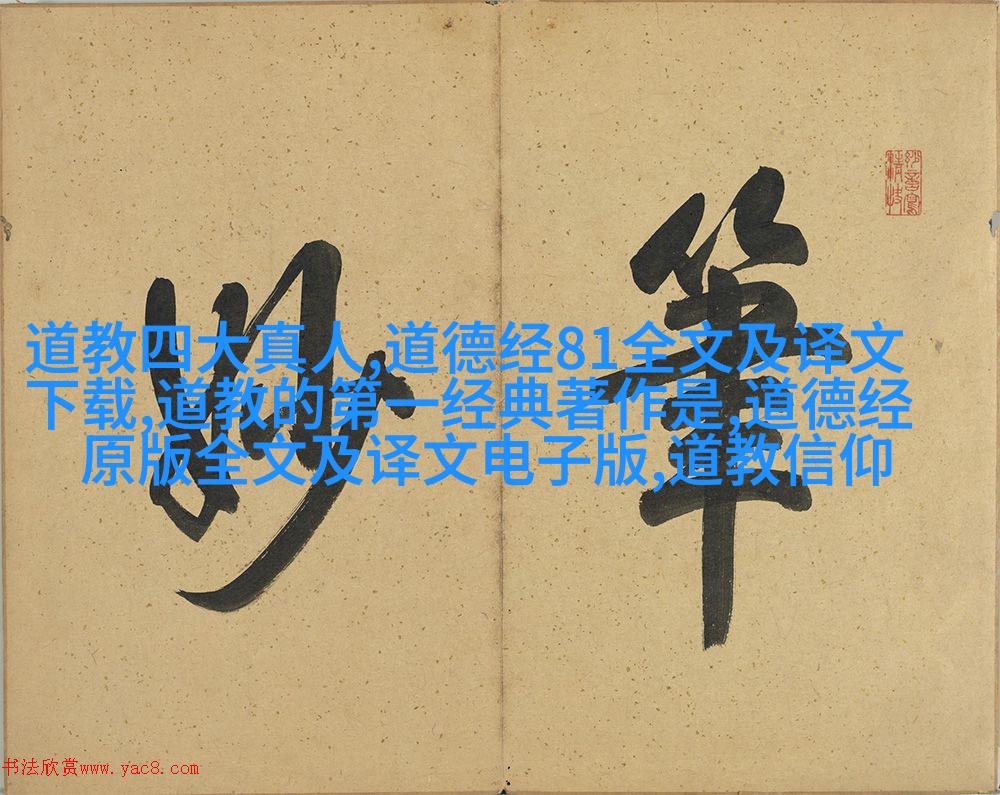 筆
妙
道教四大真人,道德经81全文及译文
下载,道教的第一经典著作是,道德经
原版全文及译文电子版,道教信仰
书法欣赏www.yac8.com